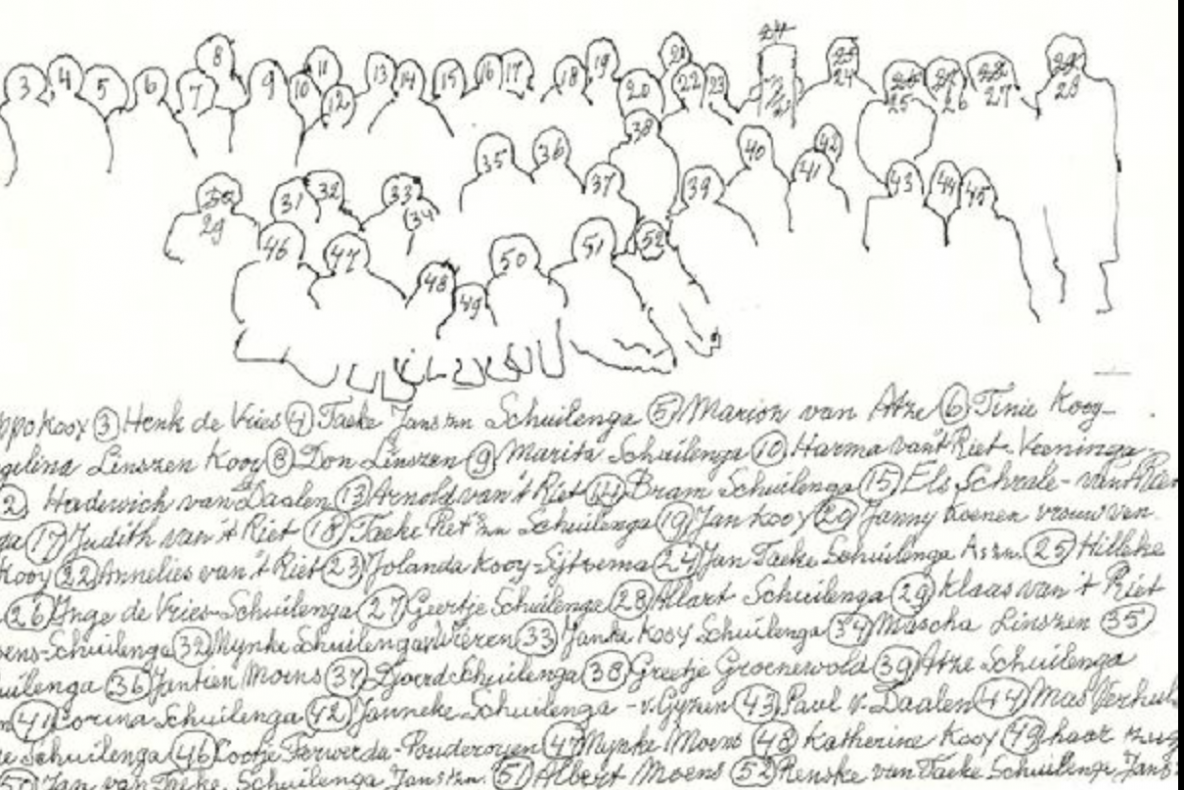 3 4 5 6 7 8 9 10 11 12 13 14 15 16 17 18 19 20 21 22 23 24 25 24 25 26 27 28
29 31 32 33 34 35 36 37 38 39 40 41 42 43 44 45
46 47 48 49 50 51 52
③ Henk de Vries ④ Taeke Janszn Schuilenga ⑤ Marion van Atze ⑥ Tinie Kooy-
gelina Linszen Kooy ⑧ Don Linszen ⑨ Marita Schuilenga ⑩ Harma van't Riet-Veeninga
Hadewich van Daalen ⑬ Arnold van 't Riet ⑭ Bram Schuilenga ⑮ Els Schrale-
ga ⑰ Judith van 't Riet ⑱ Taeke Schuilenga ⑲ Jan Kooy ⑳ Janny Koenen vrouw van
Kooy ㉒ Annelies van 't Riet ㉓ Jolanda Kooy-Sijtsema ㉔ Jan Taeke Schuilenga Aszn. ㉕ Hilleke
㉖ Inge de Vries-Schuilenga ㉗ Geertje Schuilenga ㉘ Allart Schuilenga ㉙ Klaas van 't Riet
ens-Schuilenga ㉜ Nynke Schuilenga ㉝ Janke Kooy Schuilenga ㉞ Mascha Linszen ㉟
uilenga ㊱ Jantien Moens ㊲ Sjoerd Schuilenga ㊳ Greetje Groenewold ㊴ Atze Schuilenga
㊶ Corina Schuilenga ㊷ Janneke Schuilenga - v. Gyzen ㊸ Paul v. Daalen ㊹
Schuilenga ㊻ Cootje Ferwerda-Pouderoyen ㊼ Nynke Moens ㊽ Katherine Kooy ㊾ haar
㊿ Jan van Taeke Schuilenga Janszn. (51) Albert Moens (52) Renske van Taeke Schuilenga Jans